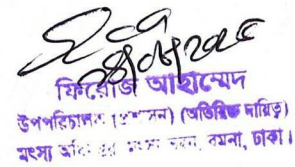 ফিরোজ আহাম্মেদ
উপপরিচালক (প্রশাসন) (অতিরিক্ত দায়িত্ব)
মৎস্য ভবন, রমনা, ঢাকা।